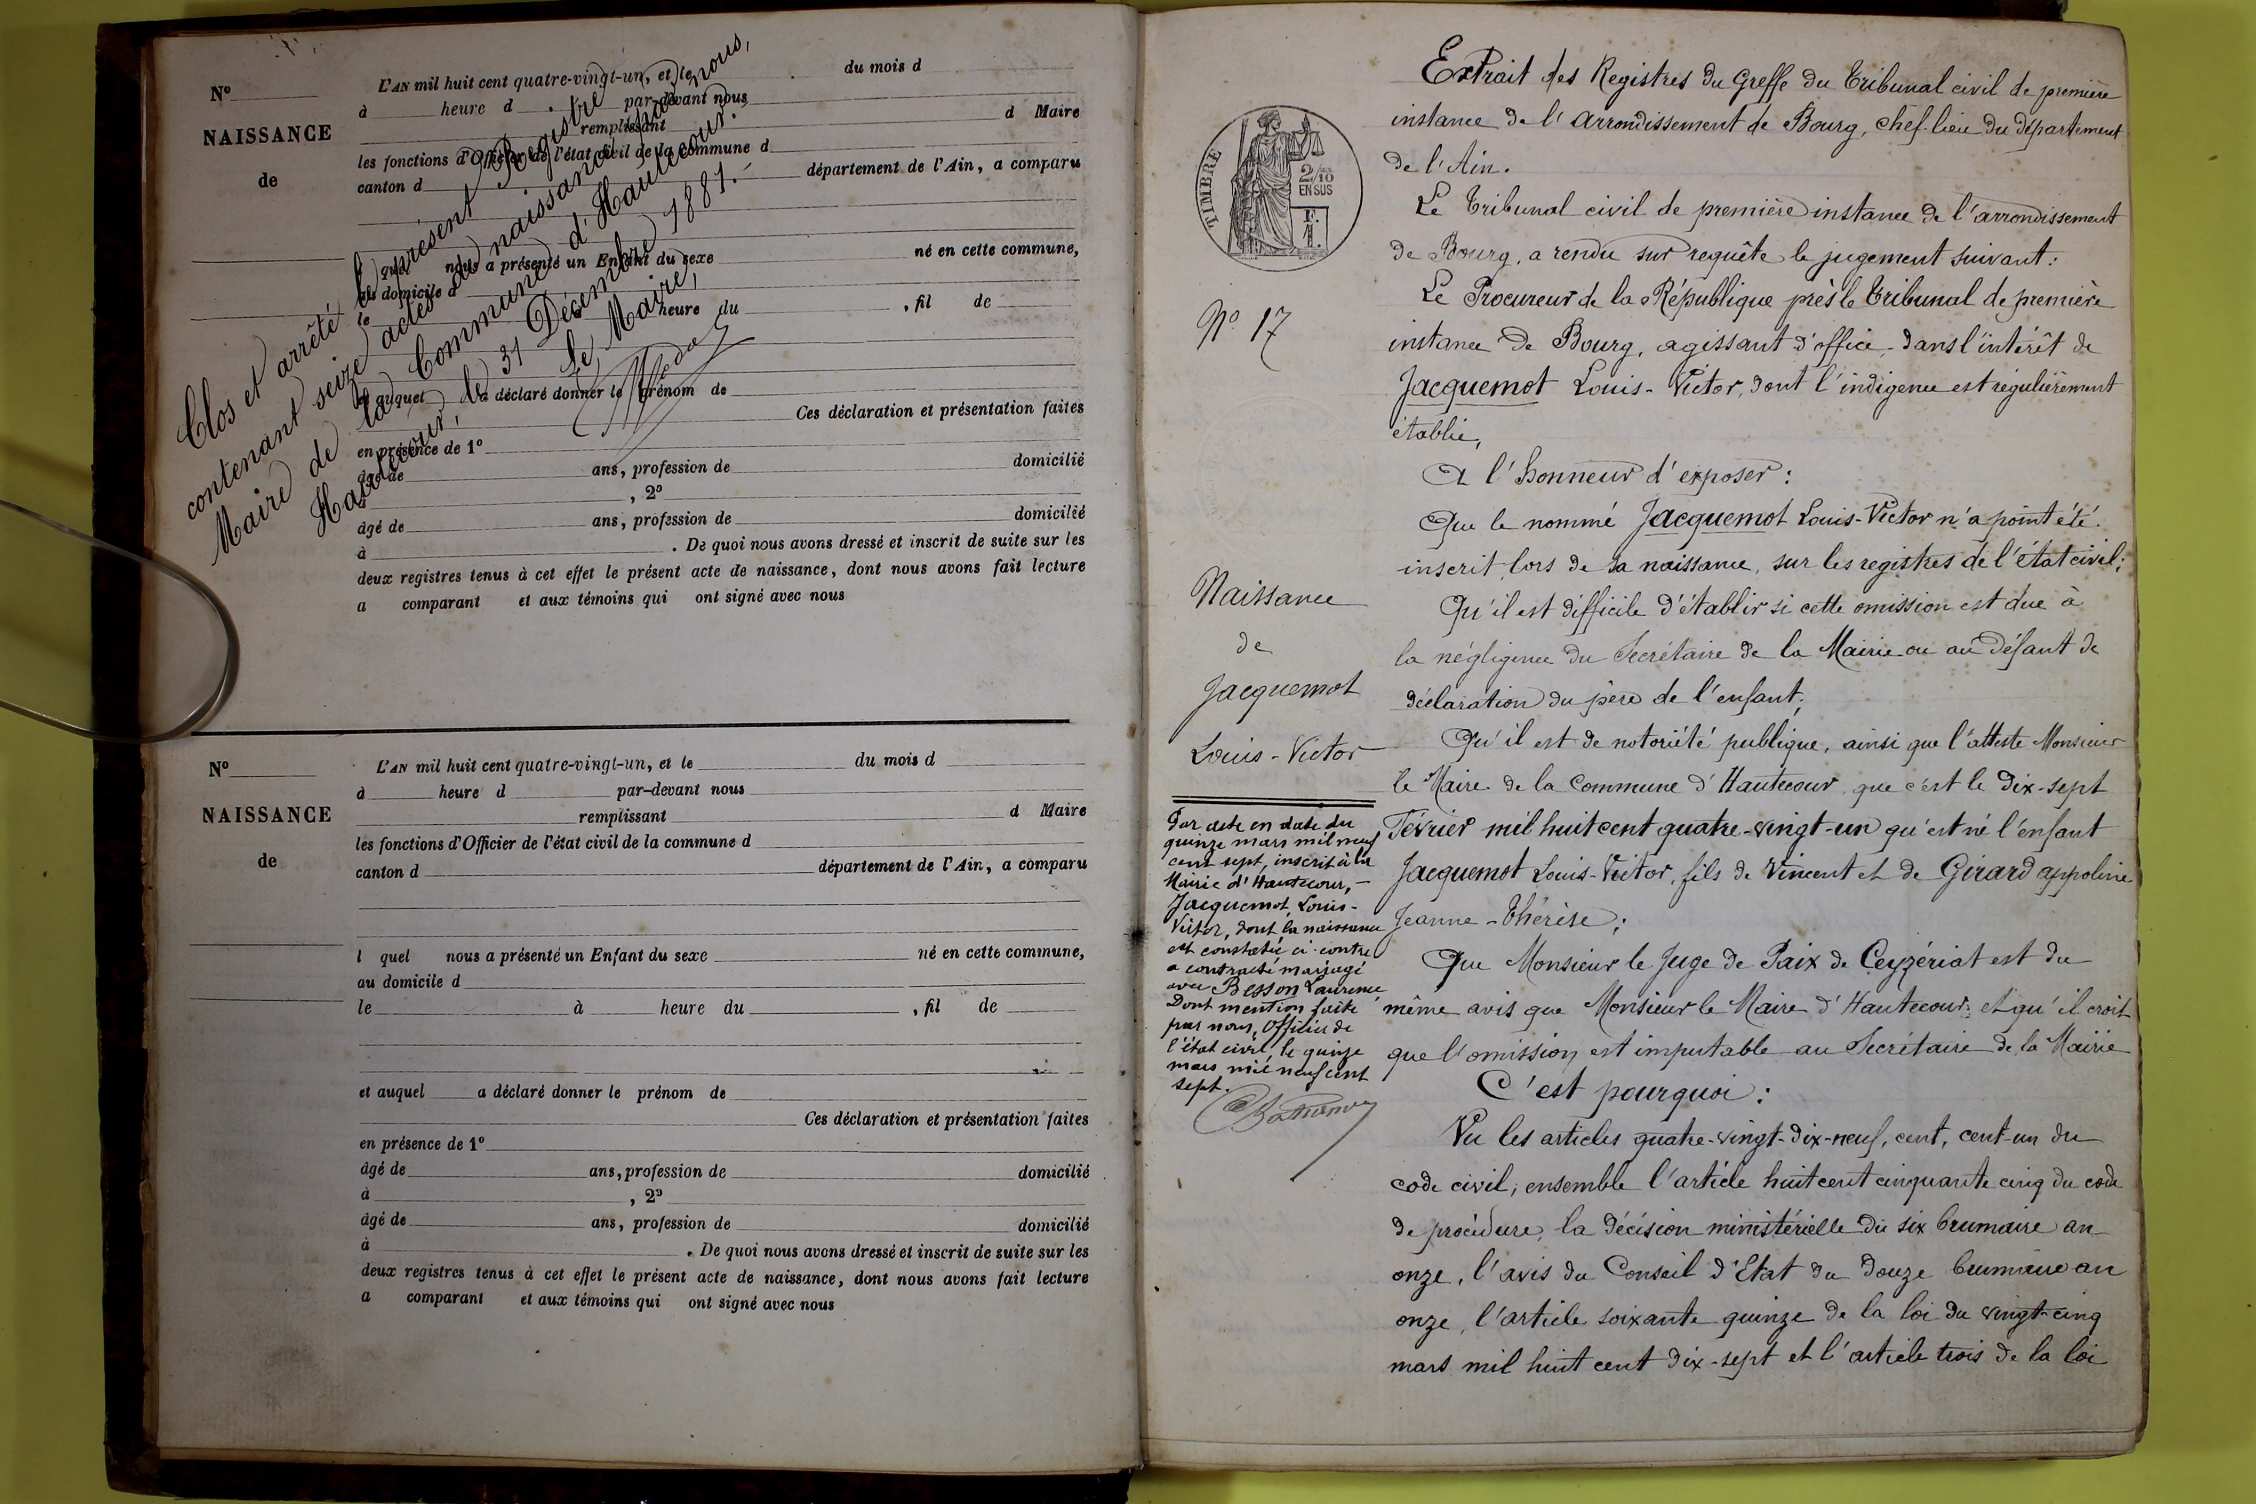 Nº
NAISSANCE
de
L'AN mil huit cent quatre-vingt-un, et le
du mois d
à heure d par-devant nous
remplissant
d Maire
les fonctions d'Officier de l'état civil de la commune d
canton d
département de l'Ain, a comparu
quel nous a présenté un Enfant du sexe
né en cette commune,
au domicile d
le
heure du , fil de
et auquel a déclaré donner le prénom de
Ces déclaration et présentation faites
en présence de 1º
âgé de ans, profession de domicilié
, 2º
âgé de ans, profession de domicilié
à . De quoi nous avons dressé et inscrit de suite sur les
deux registres tenus à cet effet le présent acte de naissance, dont nous avons fait lecture
a comparant et aux témoins qui ont signé avec nous
Clos et arrêté le présent Registre
contenant seize actes de naissance par nous,
Maire de la Commune d'Hautecour.
Hautecour, le 31 Décembre 1881.
Le Maire,
Nº
NAISSANCE
de
L'AN mil huit cent quatre-vingt-un, et le du mois d
à heure d par-devant nous
remplissant d Maire
les fonctions d'Officier de l'état civil de la commune d
canton d département de l'Ain, a comparu
l quel nous a présenté un Enfant du sexe né en cette commune,
au domicile d
le à heure du , fil de
et auquel a déclaré donner le prénom de
Ces déclaration et présentation faites
en présence de 1º
âgé de ans, profession de domicilié
à , 2º
âgé de ans, profession de domicilié
à . De quoi nous avons dressé et inscrit de suite sur les
deux registres tenus à cet effet le présent acte de naissance, dont nous avons fait lecture
a comparant et aux témoins qui ont signé avec nous
TIMBRE
2/10
EN SUS
Nº 17
Naissance
de
Jacquemot
Louis-Victor
Par acte en date du
quinze mars mil neuf
cent sept, inscrit à la
Mairie d'Hautecour,
Jacquemot, Louis-
Victor, dont la naissance
est constatée ci-contre
a contracté mariage
avec Besson Laurence,
Dont mention faite
par nous, Officier de
l'état civil, le quinze
mars mil neuf cent
sept.
Extrait des Registres du Greffe du Tribunal civil de première
instance de l'arrondissement de Bourg, chef-lieu du département
de l'Ain.
Le Tribunal civil de première instance de l'arrondissement
de Bourg, a rendu sur requête le jugement suivant:
Le Procureur de la République près le Tribunal de première
instance de Bourg, agissant d'office, dans l'intérêt de
Jacquemot Louis-Victor, dont l'indigence est régulièrement
établie,
A l'honneur d'exposer:
Que le nommé Jacquemot Louis-Victor n'a point été
inscrit, lors de sa naissance, sur les registres de l'état civil;
Qu'il est difficile d'établir si cette omission est due à
la négligence du Secrétaire de la Mairie ou au défaut de
déclaration du père de l'enfant;
Qu'il est de notoriété publique, ainsi que l'atteste Monsieur
le Maire de la Commune d'Hautecour, que c'est le dix-sept
Février mil huit cent quatre-vingt-un qu'est né l'enfant
Jacquemot Louis-Victor, fils de Vincent et de Girard appoline
Jeanne-Thérèse;
Que Monsieur le Juge de Paix de Ceyzériat est du
même avis que Monsieur le Maire d'Hautecour; et qu'il croit
que l'omission est imputable au Secrétaire de la Mairie
C'est pourquoi:
Vu les articles quatre-vingt-dix-neuf, cent, cent-un du
code civil, ensemble l'article huit cent cinquante cinq du code
de procédure, la décision ministérielle du six brumaire an
onze, l'avis du Conseil d'Etat du douze brumaire an
onze, l'article soixante quinze de la loi du vingt-cinq
mars mil huit cent dix-sept et l'article trois de la loi